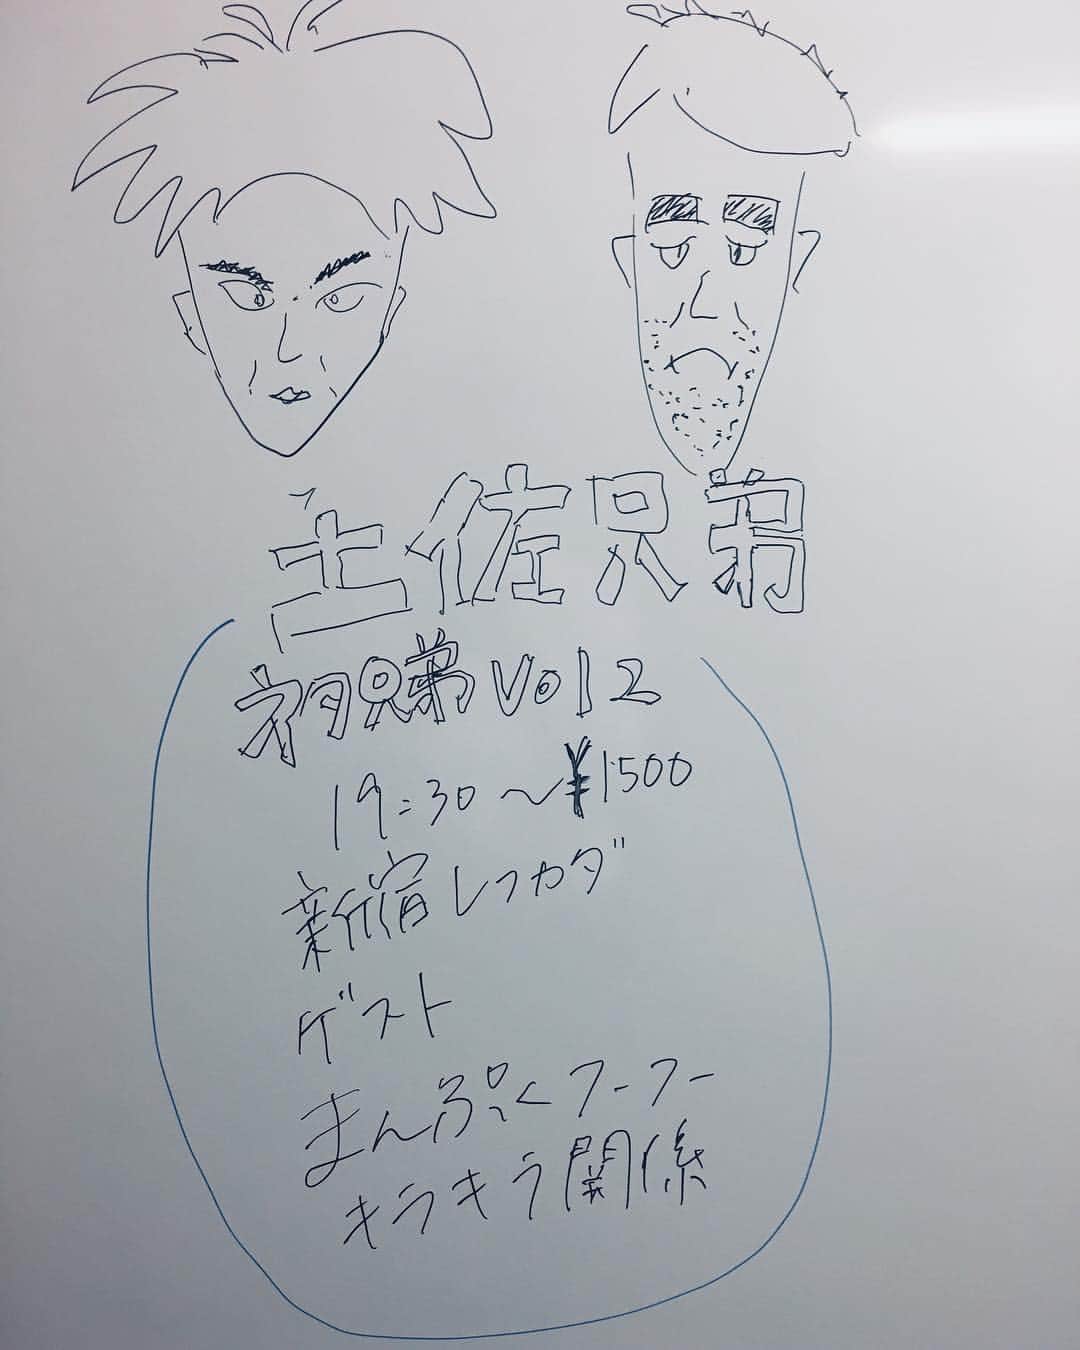 土佐兄弟
ネタ兄弟 Vol 2
19:30〜¥1500
新宿レフカダ
ゲスト
まんぷくフーフー
キラキラ関係